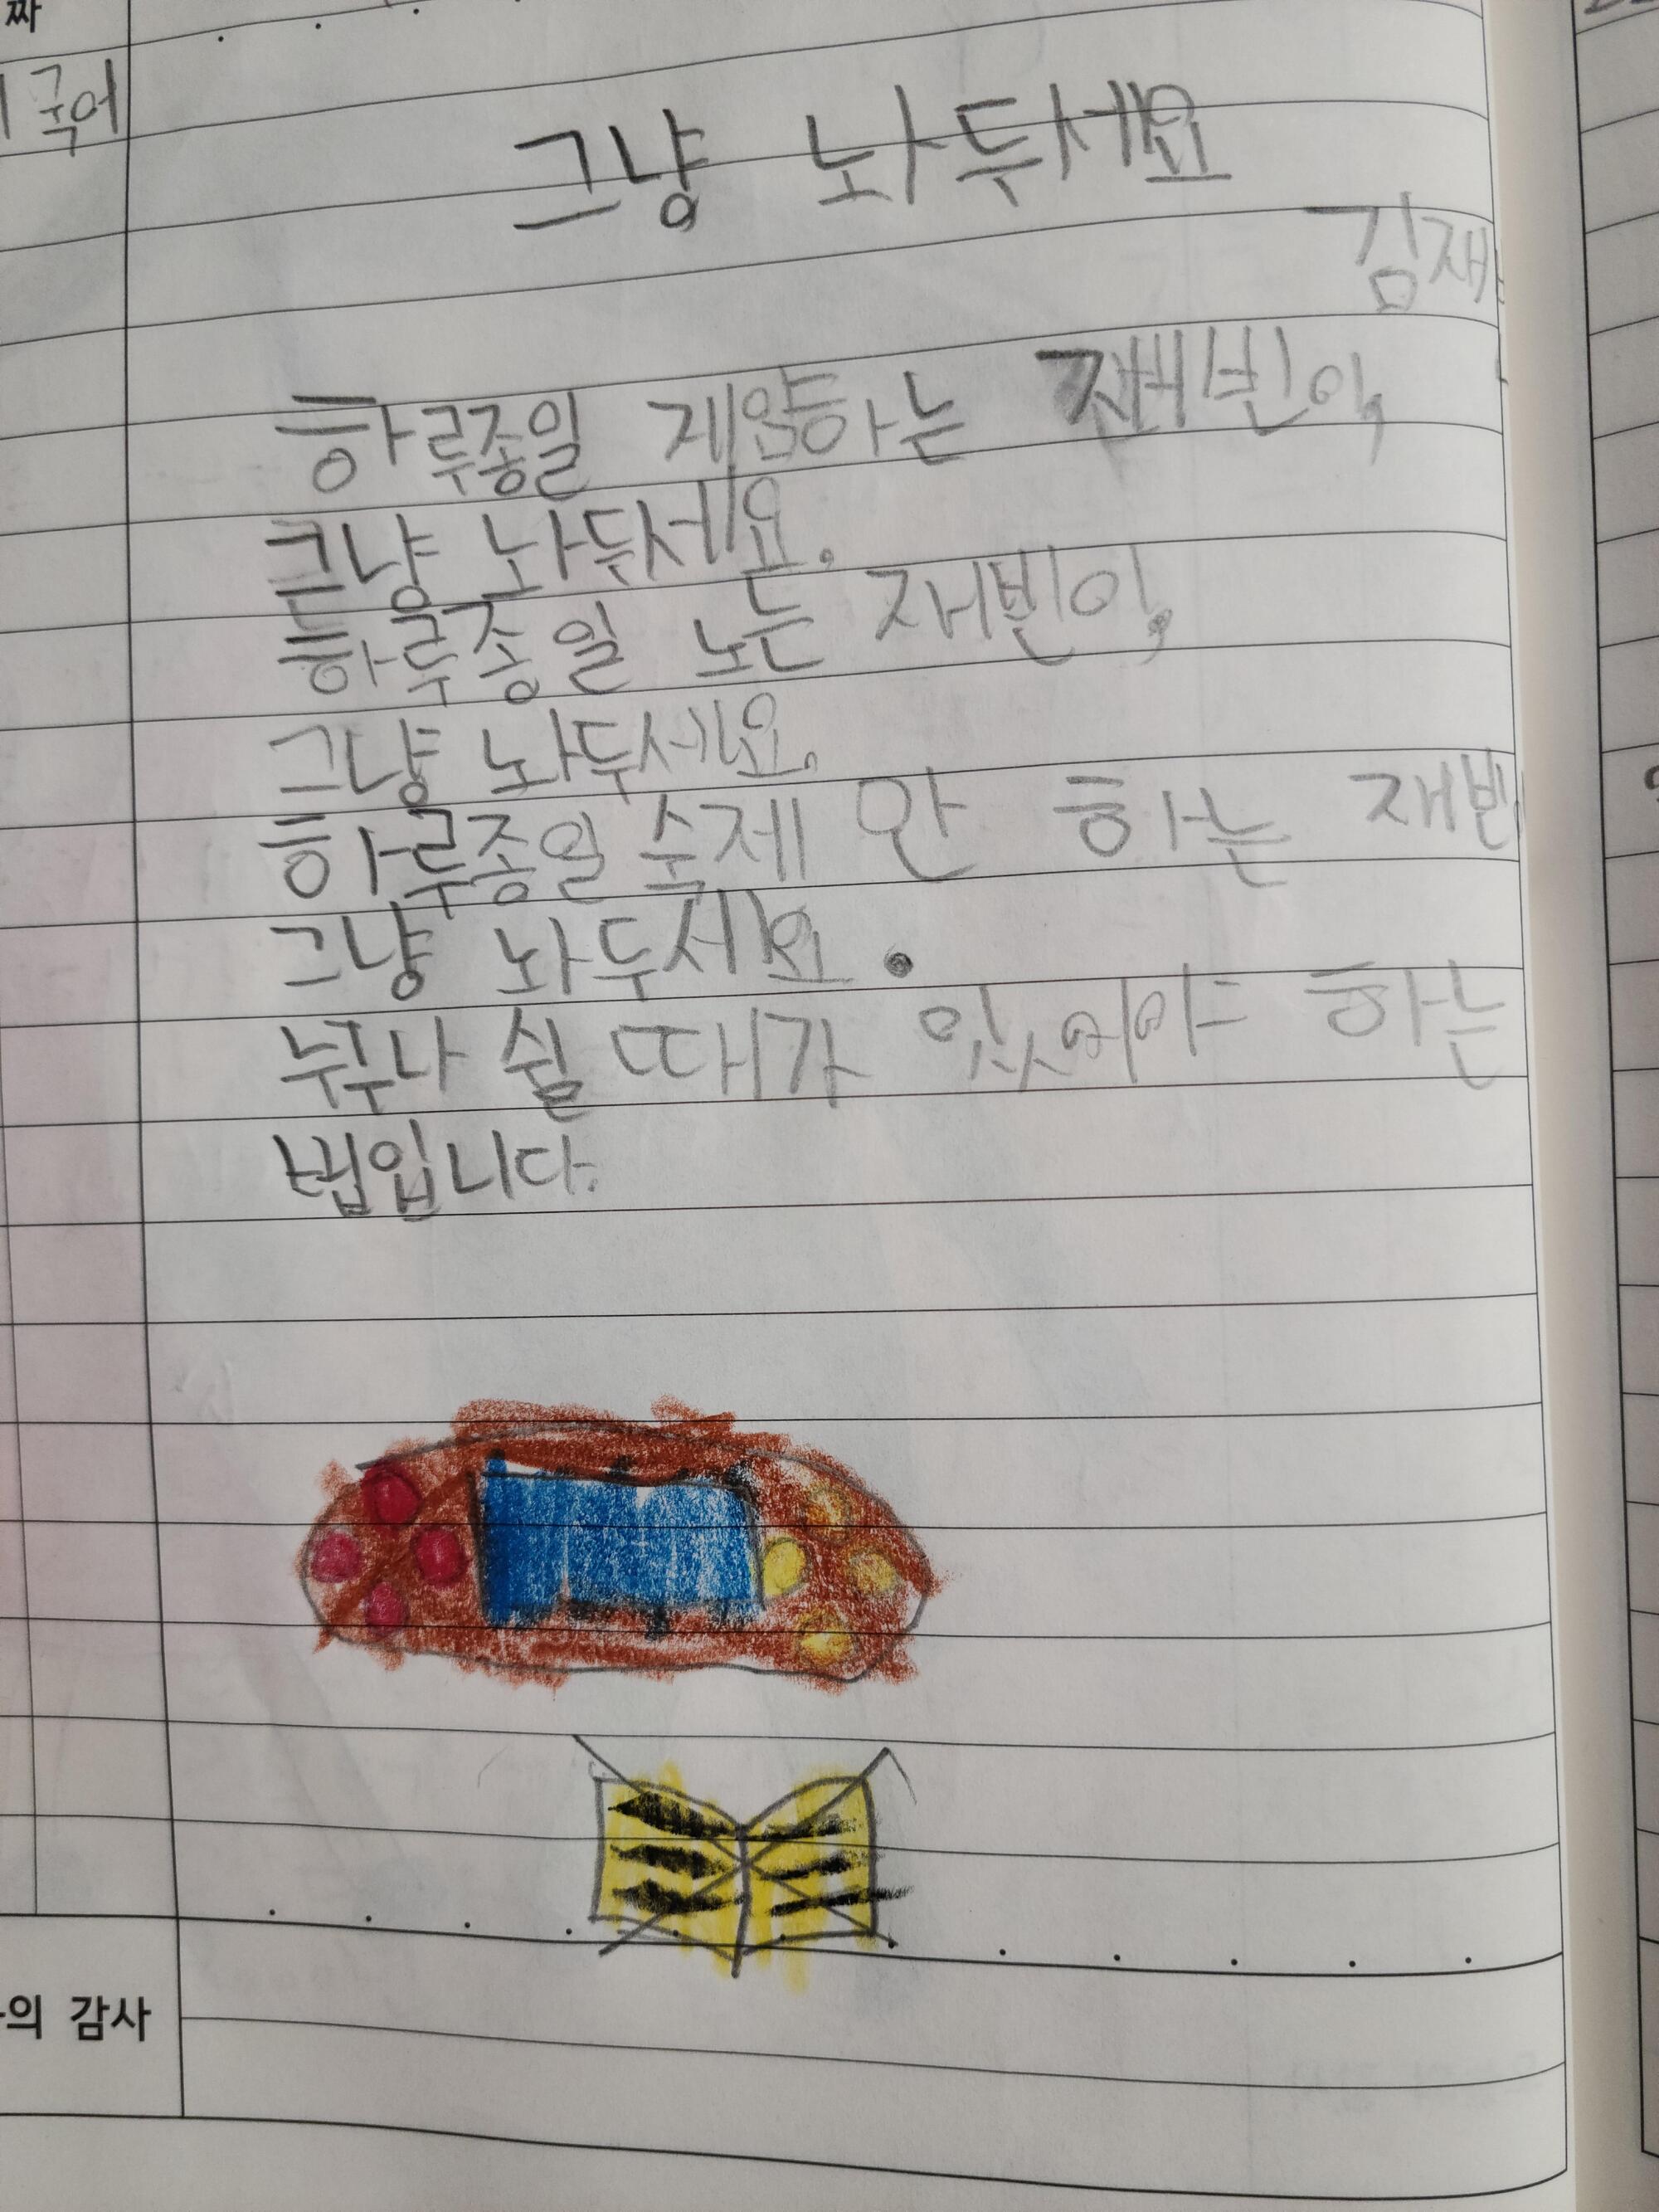 짜
국어
그냥 놔두세요
김재
하루종일 게임하는 재빈이,
그냥 놔둬세요.
하루종일 노는 재빈이,
그냥 놔두세요.
하루종일 숙제 안 하는 재빈
그냥 놔두세요.
누구나 쉴 때가 있어야 하는
법입니다.
의 감사